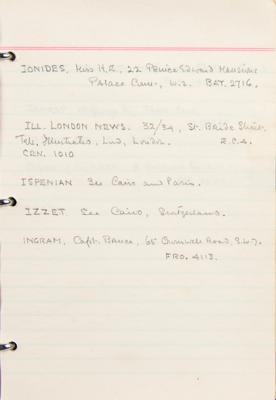 IONIDES, Miss H.E., 22 Prince Edward Mansions
Palace Court, W.2. BAY. 2716.
ILL. LONDON NEWS. 32/34, St. Bride Street.
Tele, Illustrates, Lud, London. E.C.4.
CEN. 1010
ISPENIAN See Cairo and Paris.
IZZET. See Cairo, Switzerland.
INGRAM, Capt. Bruce, 65 Cromwell Road, S.W.7.
FRO. 4113.